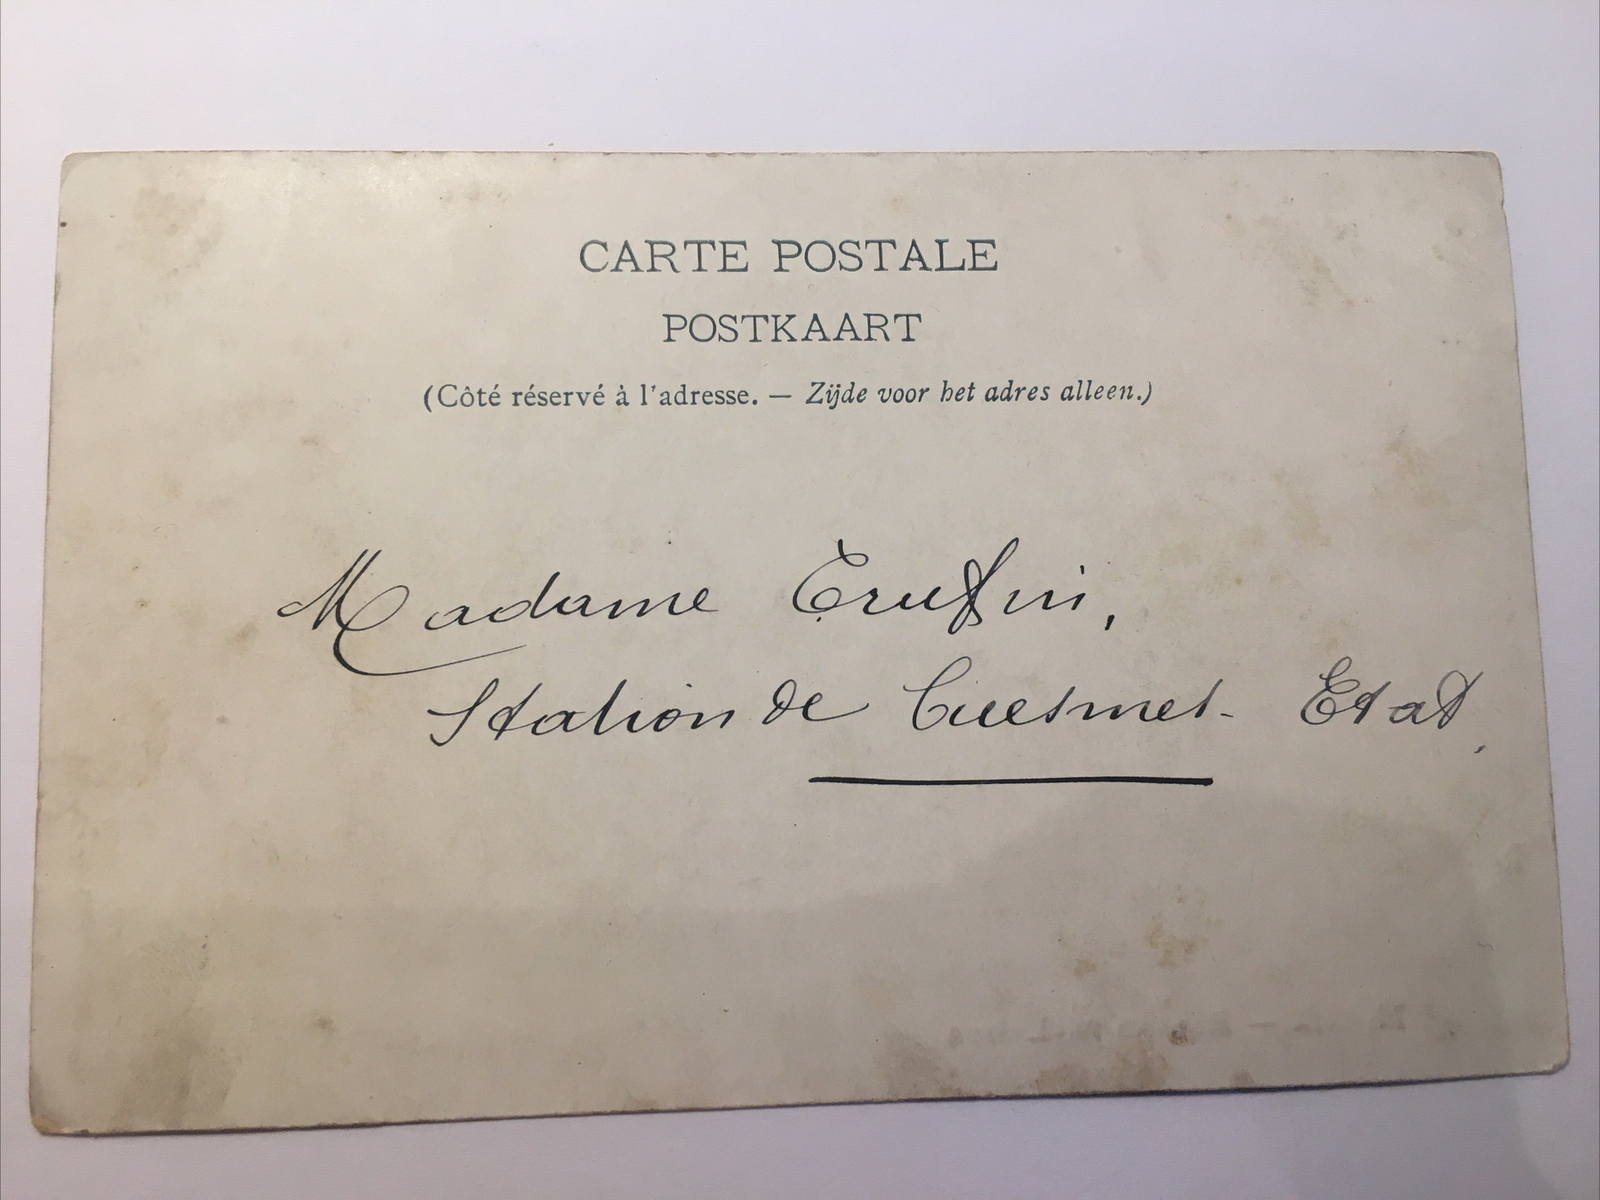 CARTE POSTALE
POSTKAART
(Côté réservé à l'adresse. — Zijde voor het adres alleen.)
Madame
Station de Cuesmes - Etat,